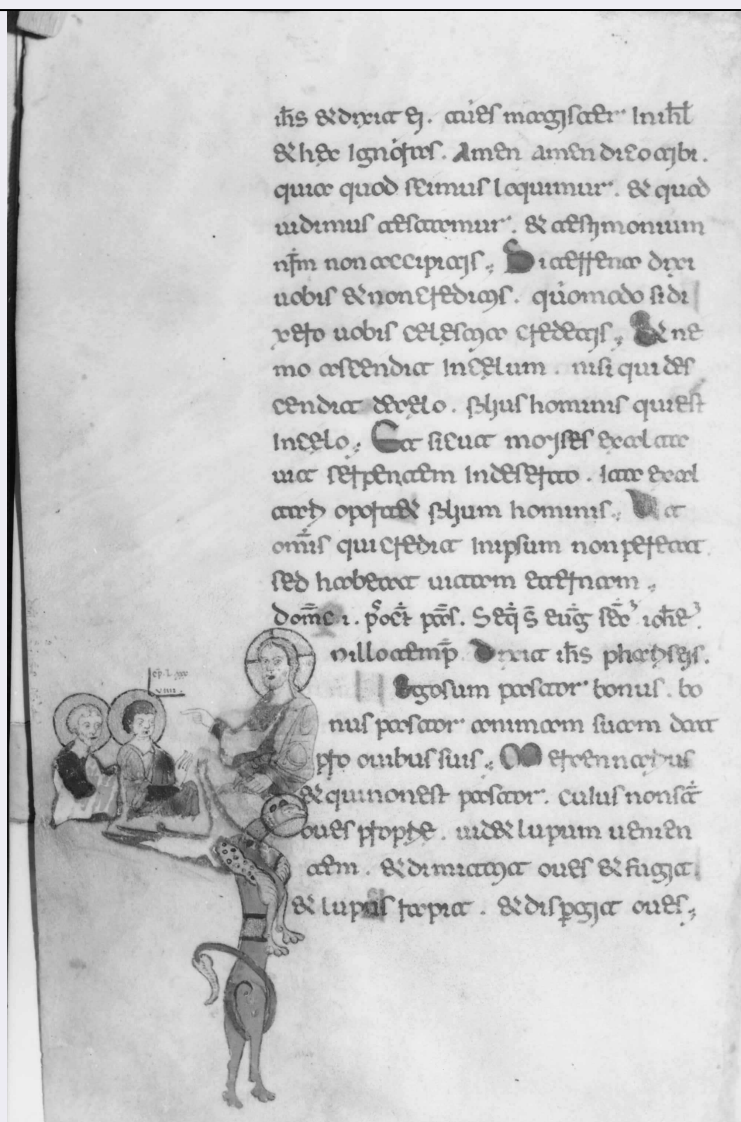 ih̄s & dixit ei. tu es magister In isrl̄
& hec Ignoras. Amen amen dico tibi.
quia quod scimus loquimur. & quod
uidimus testamur. & testimonium
nr̄m non accipitis. Si terrena dixi
uobis & non creditis. quomodo si di
xero uobis celestia credetis. Et ne
mo ascendit In celum. nisi qui des
cendit de celo. filius hominis qui est
In celo. Et sicut moyses exalta
uit serpentem In deserto. Ita exal
tari oportet filium hominis. Ut
om̄is qui credit In ipsum non pereat
sed habeat uitam eternam.
dom̄c .i. p̊ oct̄ pas̄. Seq̄ s̄ eūg sec̄ ioh̄e
n illo temp̄. Dixit ih̄s phariseis.
Ego sum pastor bonus. bo
nus pastor animam suam dat
pro ouibus suis. Mercennarius
& qui non est pastor. cuius non st̄
oues proprie. uidet lupum uenien
tem. & dimittit oues & fugit.
& lupus rapit. & dispergit oues.